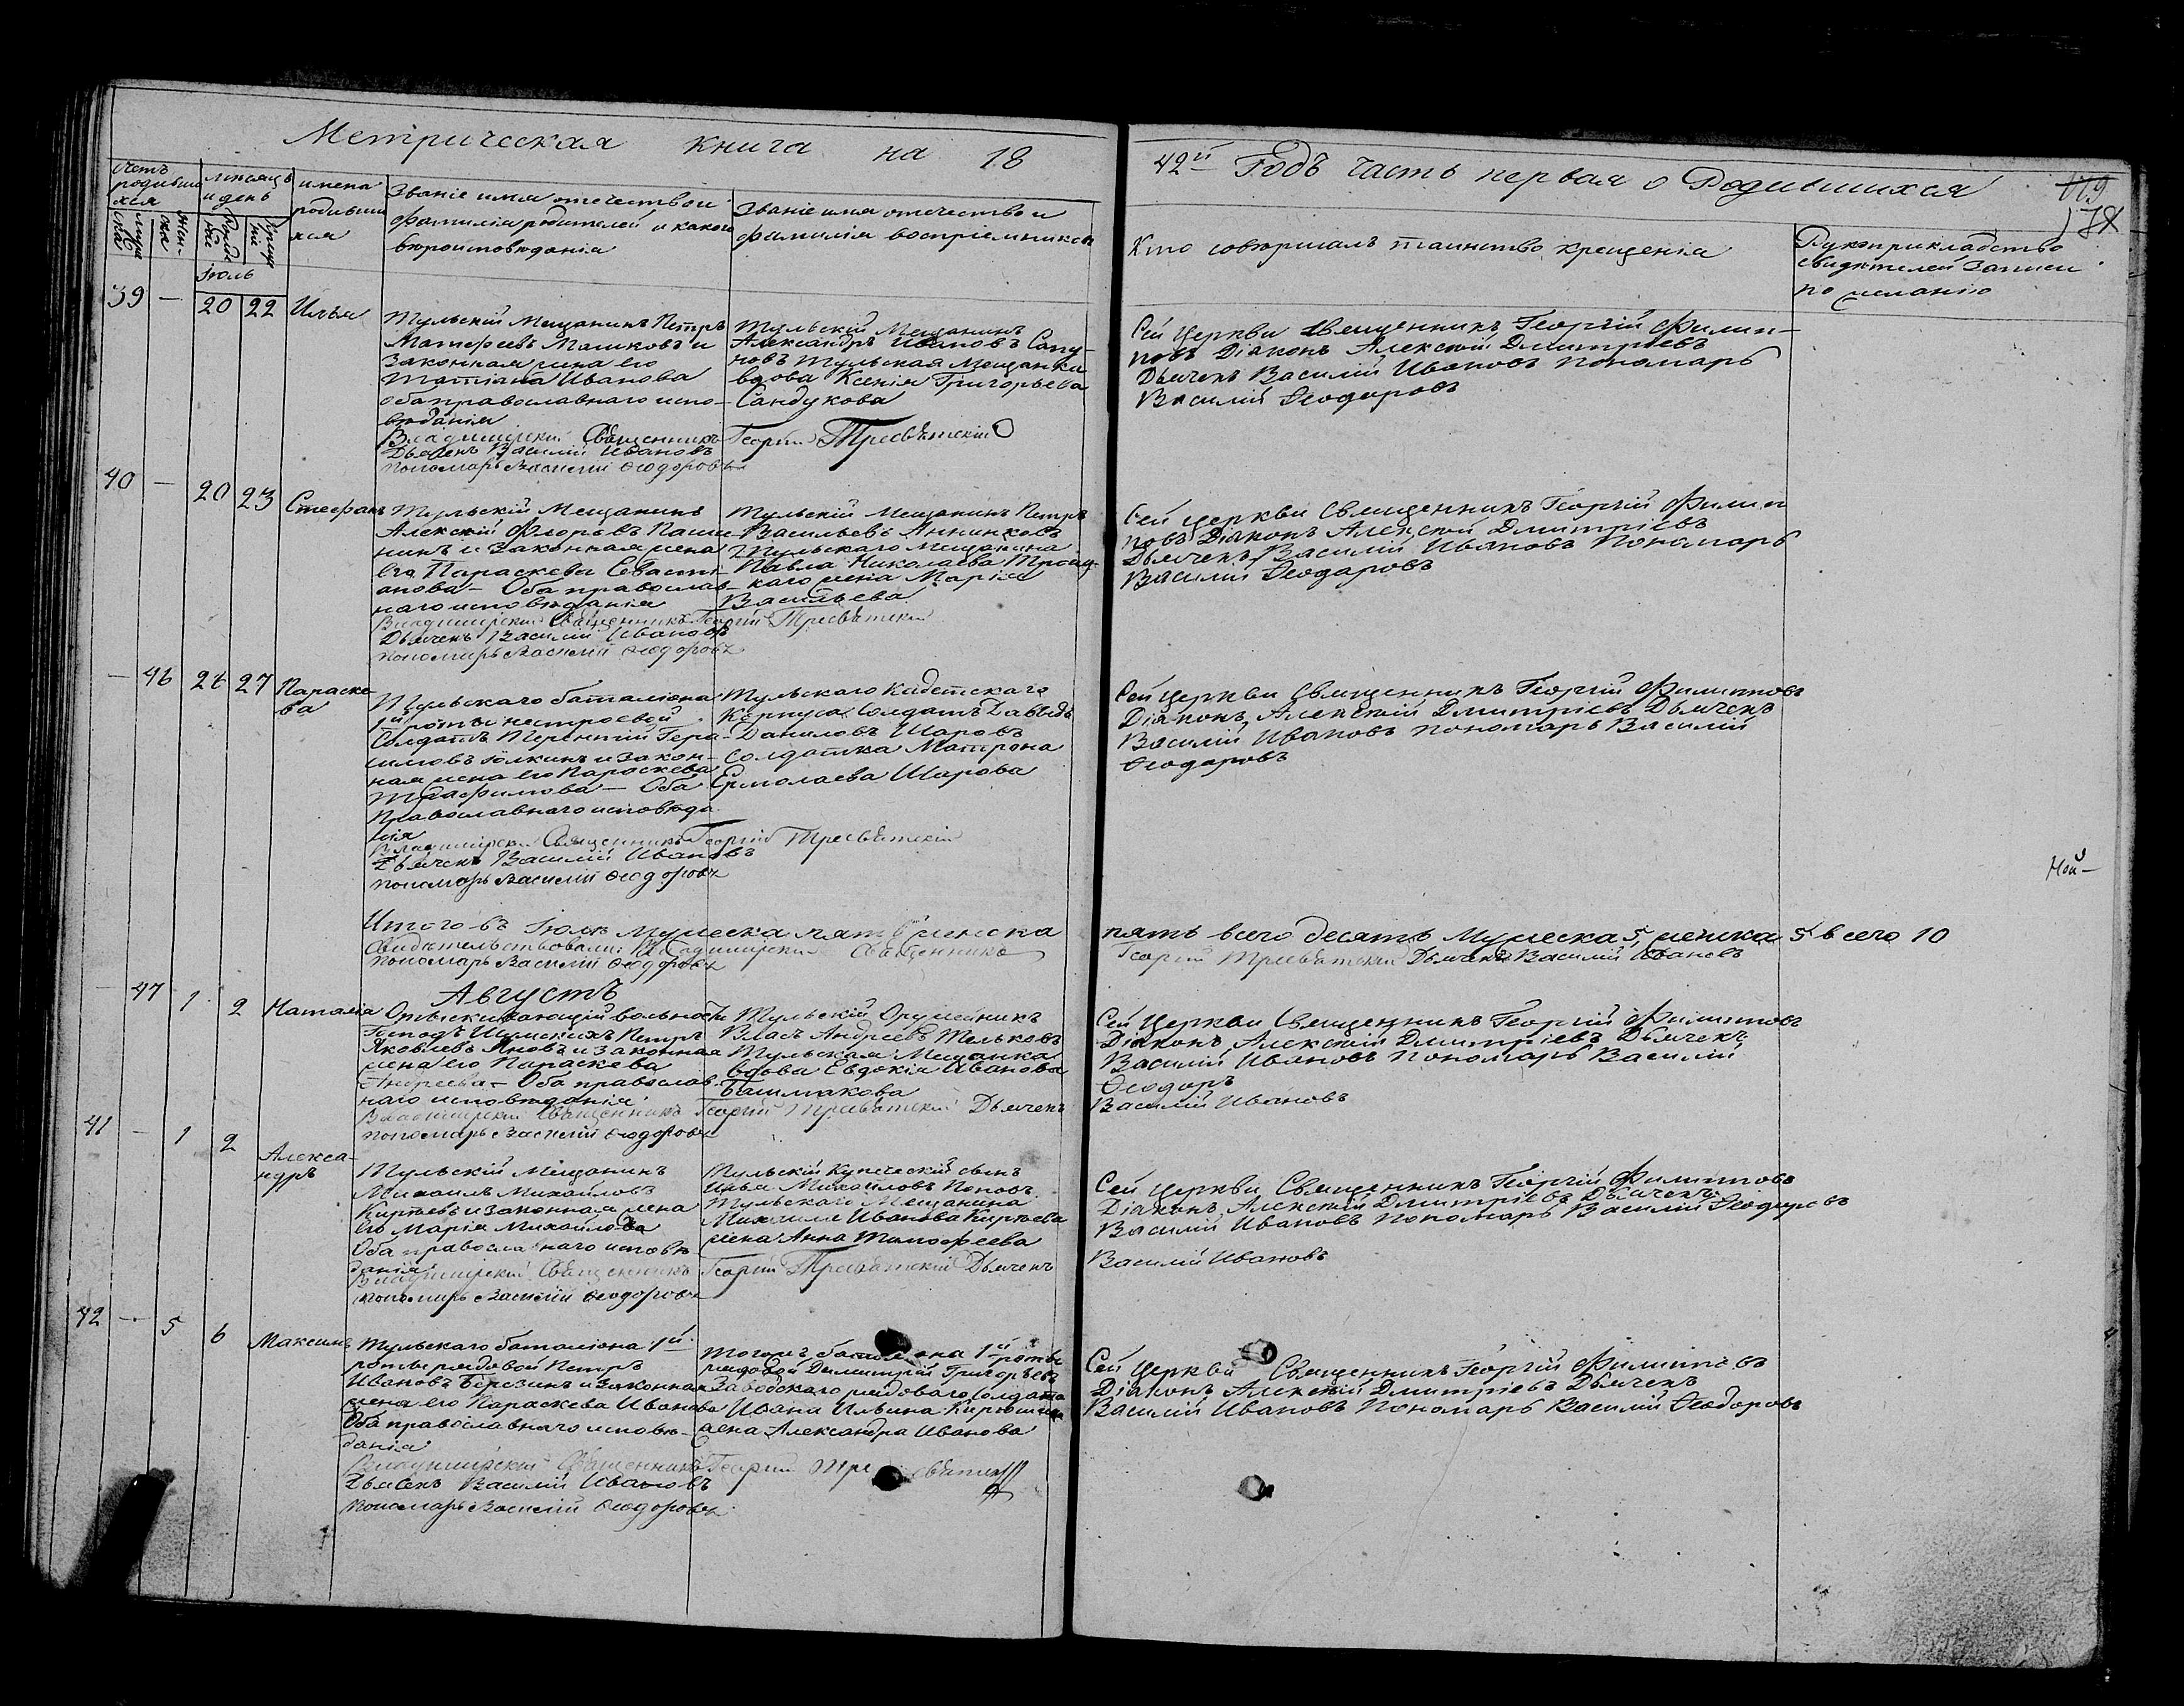 Метрическая книга на 18
42й Годъ часть первая о Родившихся
179
178
Счетъ родившихся
мѣсяцъ и день
имена родившихся
Званіе имя отечество и фамилія родителей и какого вѣроисповѣданія
Званіе имя отечество и фамилія воспріемниковъ
Кто совершалъ таинство крещенія
Рукоприкладство свидѣтелей записи по желанію
Іюль
39 — 20 22 Илья
Тульскій Мещанинъ Петръ
законная жена его
Татіана Иванова
оба православнаго испо-
вѣданія
Тульскій Мещанинъ
Александръ Ивановъ Сапу-
новъ Тульская Мещанка
вдова Ксенія Григорьева
Сандукова
Сей Церкви Священникъ Георгій Филип-
повъ Діаконъ Алексѣй Дмитріевъ
Дьячекъ Василій Ивановъ Пономарь
Василій Ѳеодоровъ
Владимірскій Священникъ Георгій Тресвятскій
Дьячекъ Василій Ивановъ
пономарь Василій Ѳеодоровъ
40 — 20 23 Стефанъ
Тульскій Мещанинъ
Алексѣй Флоровъ Паши-
нинъ и Законная жена
его Параскева Севасті-
анова — Оба православ-
наго исповѣданія
Тульскій Мещанинъ Петръ
Васильевъ Анниковъ
Тульскаго Мещанина
Павла Николаева Троиц-
каго жена Марія
Васильева
Сей Церкви Священникъ Георгій Филип
повъ Діаконъ Алексѣй Дмитріевъ
Дьячекъ Василій Ивановъ Пономарь
Василій Ѳеодоровъ
Владимірскій Священникъ Георгій Тресвятскій
Дьячекъ Василій Ивановъ
пономарь Василій Ѳеодоровъ
— 46 26 27 Параске-
ва
Тульскаго баталіона
1й роты нестроевой
Солдатъ Терентій Гера-
симовъ Юлкинъ и закон-
ная жена его Параскева
Трофимова — Оба
Православнаго исповѣда
нія
Тульскаго Кадетскаго
Корпуса Солдатъ Давыдъ
Даниловъ Шаровъ
Солдатка Матрона
Ермолаева Шарова
Сей Церкви Священникъ Георгій Филиповъ
Діаконъ Алексѣй Дмитріевъ Дьячекъ
Василій Ивановъ Пономарь Василій
Ѳеодоровъ
Владимірскій Священникъ Георгій Тресвятскій
Дьячекъ Василій Ивановъ
пономарь Василій Ѳеодоровъ
Итого въ Іюлѣ мужеска пять женска
пять всего десять Мужеска 5, женска 5 всего 10
Свидѣтельствовали: Владимірскій Священникъ
Георгій Тресвятскій Дьячекъ Василій Ивановъ
пономарь Василій Ѳеодоровъ
Августъ
— 47 1 2 Наталія
Отыскивающій вольность
Яковлевъ Яновъ и законная
жена его Параскева
Андреева — Оба православ-
наго исповѣданія
Тульскій Оружейникъ
Власъ Андреевъ Тельковъ
Тульская Мещанка
вдова Евдокія Иванова
Башмакова
Сей Церкви Священникъ Георгій Филиповъ
Діаконъ Алексѣй Дмитріевъ Дьячекъ
Василій Ивановъ Пономарь Василій
Ѳеодоръ
Владимірскій Священникъ Георгій Тресвятскій Дьячекъ
Василій Ивановъ
пономарь Василій Ѳеодоровъ
41 — 1 2 Алекса-
ндръ
Тульскій Мещанинъ
Михаилъ Михайловъ
Кирѣевъ и законная жена
его Марія Михайлова
Оба православнаго исповѣ-
данія
Тульскій Купеческій сынъ
Илья Михайловъ Поповъ
Тульскаго Мещанина
Михаила Иванова Кирѣева
жена Анна Тимофеева
Сей Церкви Священникъ Георгій Филиповъ
Діаконъ Алексѣй Дмитріевъ Дьячекъ
Василій Ивановъ Пономарь Василій Ѳеодоровъ
Владимірскій Священникъ Георгій Тресвятскій Дьячекъ
Василій Ивановъ
пономарь Василій Ѳеодоровъ
42 — 5 6 Максимъ
Тульскаго баталіона 1й
роты рядовой Петръ
Ивановъ Березинъ и Законная
жена его Параскева Иванова
Оба православнаго исповѣ-
данія
Тогожъ баталіона 1й роты
рядовой Димитрій Григорьевъ
жена Александра Иванова
Сей Церкви Священникъ Георгій Филиповъ
Діаконъ Алексѣй Дмитріевъ Дьячекъ
Василій Ивановъ Пономарь Василій Ѳеодоровъ
Владимірскій Священникъ Георгій Тресвятскій
Дьячекъ Василій Ивановъ
пономарь Василій Ѳеодоровъ